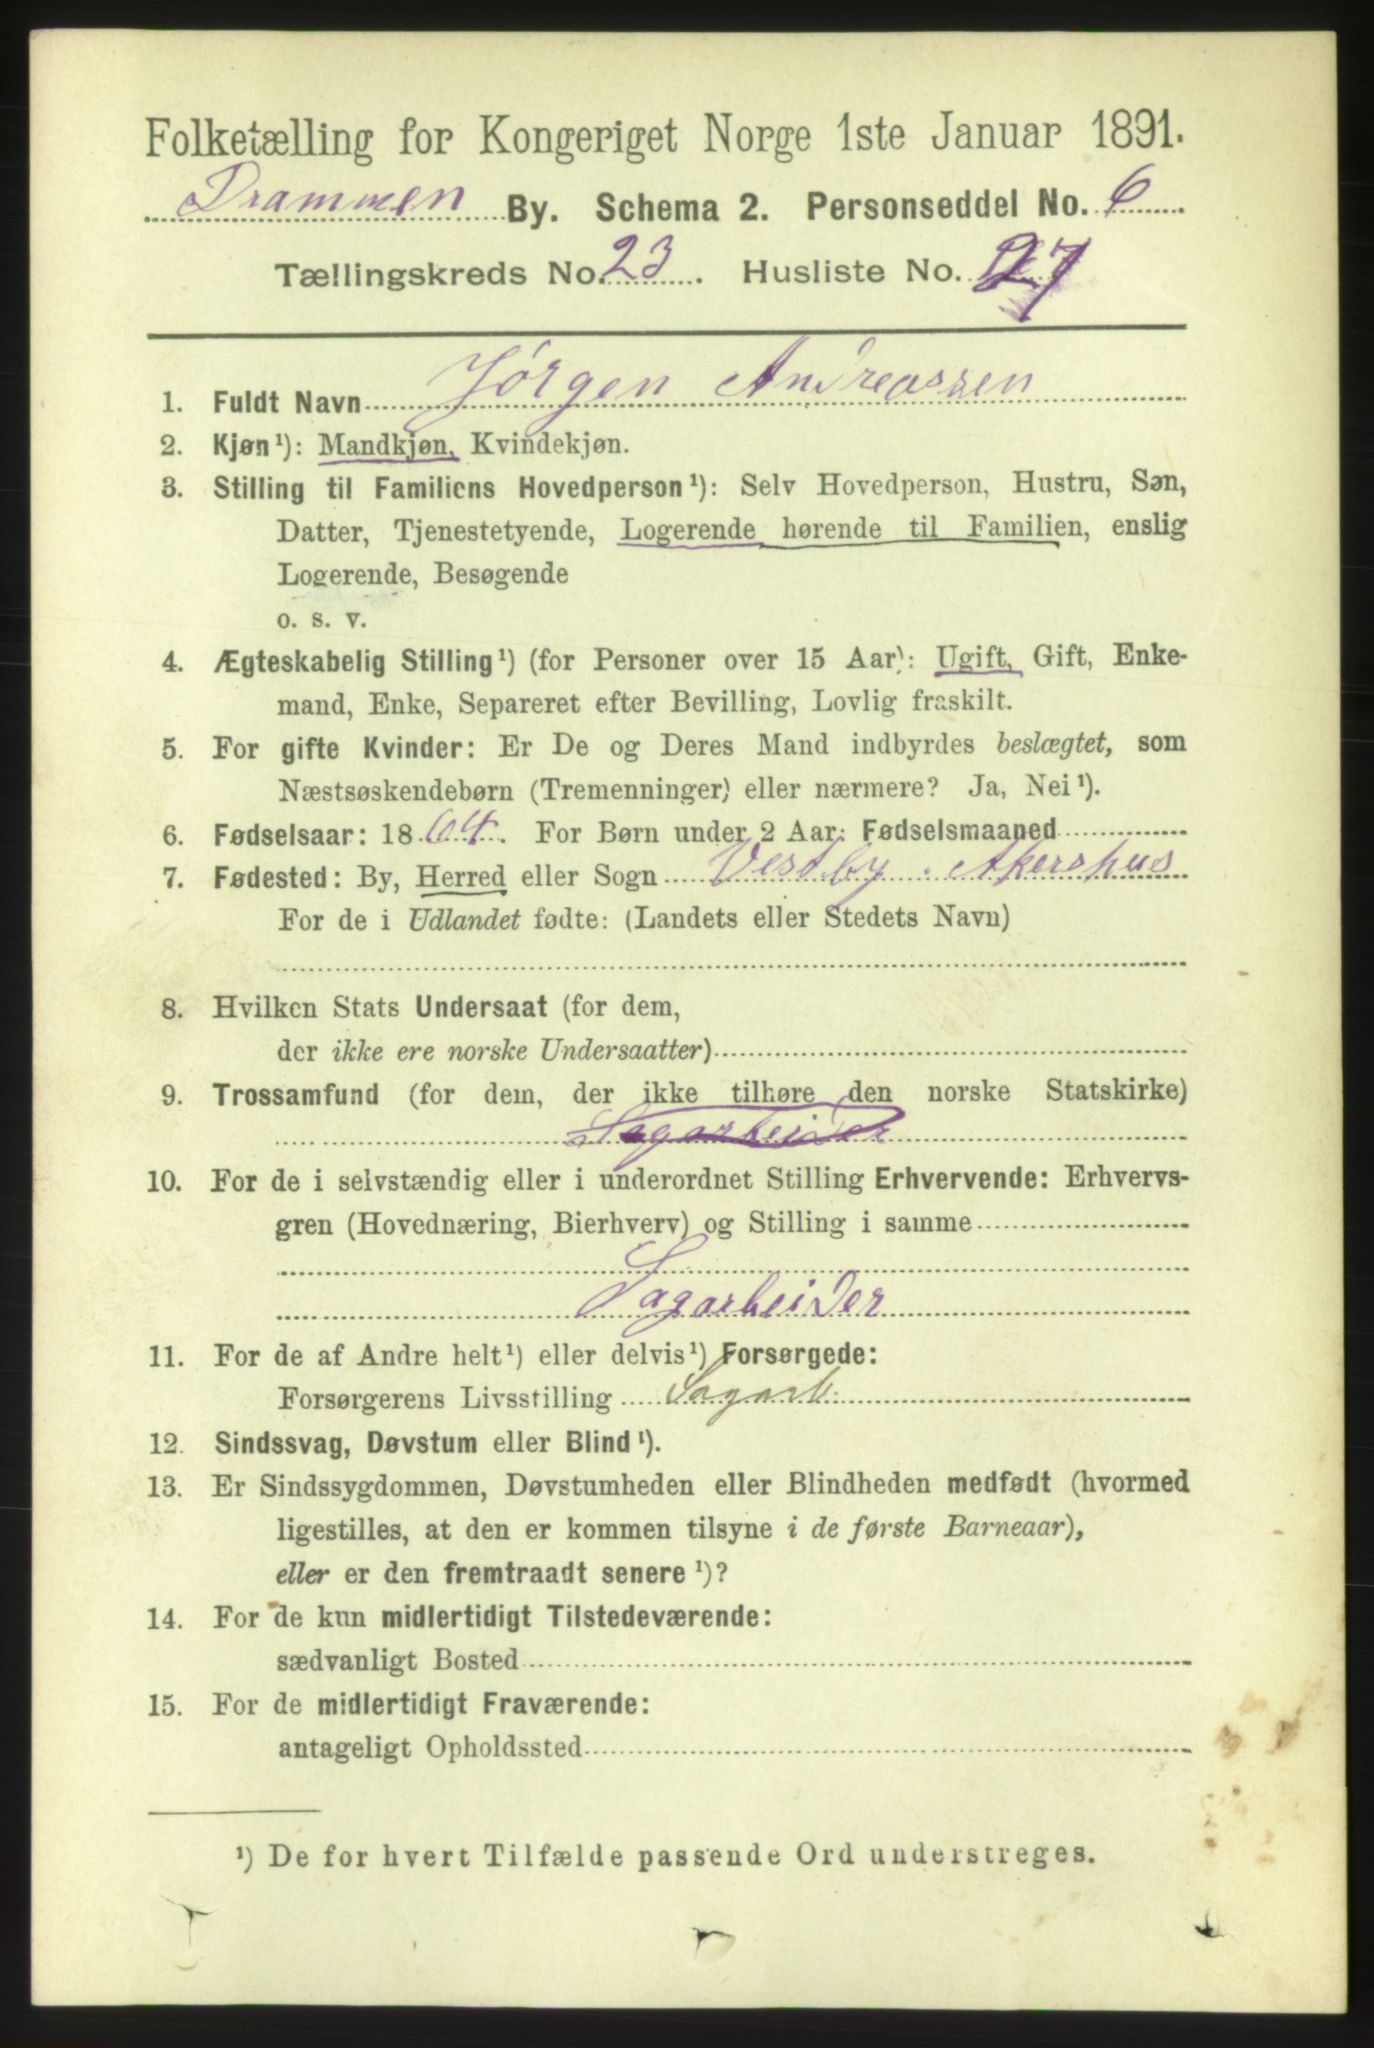 Folketælling for Kongeriget Norge 1ste Januar 1891.
Drammen By. Schema 2. Personseddel No. 6
Tællingskreds No. 23. Husliste No. 27
1. Fuldt Navn Jørgen Andreassen
2. Kjøn¹): Mandkjøn, Kvindekjøn.
3. Stilling til Familiens Hovedperson¹): Selv Hovedperson, Hustru, Søn,
Datter, Tjenestetyende, Logerende hørende til Familien, enslig
Logerende, Besøgende
o. s. v.
4. Ægteskabelig Stilling¹) (for Personer over 15 Aar): Ugift, Gift, Enke-
mand, Enke, Separeret efter Bevilling, Lovlig fraskilt.
5. For gifte Kvinder: Er De og Deres Mand indbyrdes beslægtet, som
Næstsøskendebørn (Tremenninger) eller nærmere? Ja, Nei¹).
6. Fødselsaar: 1864. For Børn under 2 Aar: Fødselsmaaned
7. Fødested: By, Herred eller Sogn Vestby. Akershus
For de i Udlandet fødte: (Landets eller Stedets Navn)
8. Hvilken Stats Undersaat (for dem,
der ikke ere norske Undersaatter)
9. Trossamfund (for dem, der ikke tilhøre den norske Statskirke)
Sagarbeider
10. For de i selvstændig eller i underordnet Stilling Erhvervende: Erhvervs-
gren (Hovednæring, Bierhverv) og Stilling i samme
Sagarbeider
11. For de af Andre helt¹) eller delvis¹) Forsørgede:
Forsørgerens Livsstilling Sagarb.
12. Sindssvag, Døvstum eller Blind¹).
13. Er Sindssygdommen, Døvstumheden eller Blindheden medfødt (hvormed
ligestilles, at den er kommen tilsyne i de første Barneaar),
eller er den fremtraadt senere¹)?
14. For de kun midlertidigt Tilstedeværende:
sædvanligt Bosted
15. For de midlertidigt Fraværende:
antageligt Opholdssted
¹) De for hvert Tilfælde passende Ord understreges.